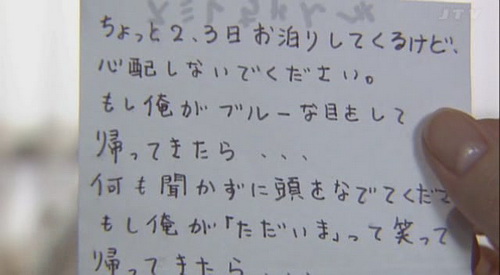 JTV
ちょっと2、3日お泊りしてくるけど、
心配しないでください。
もし俺がブルーな目をして
帰ってきたら...
何も聞かずに頭をなでてくだ
もし俺が「ただいま」って笑って
帰ってきたら....